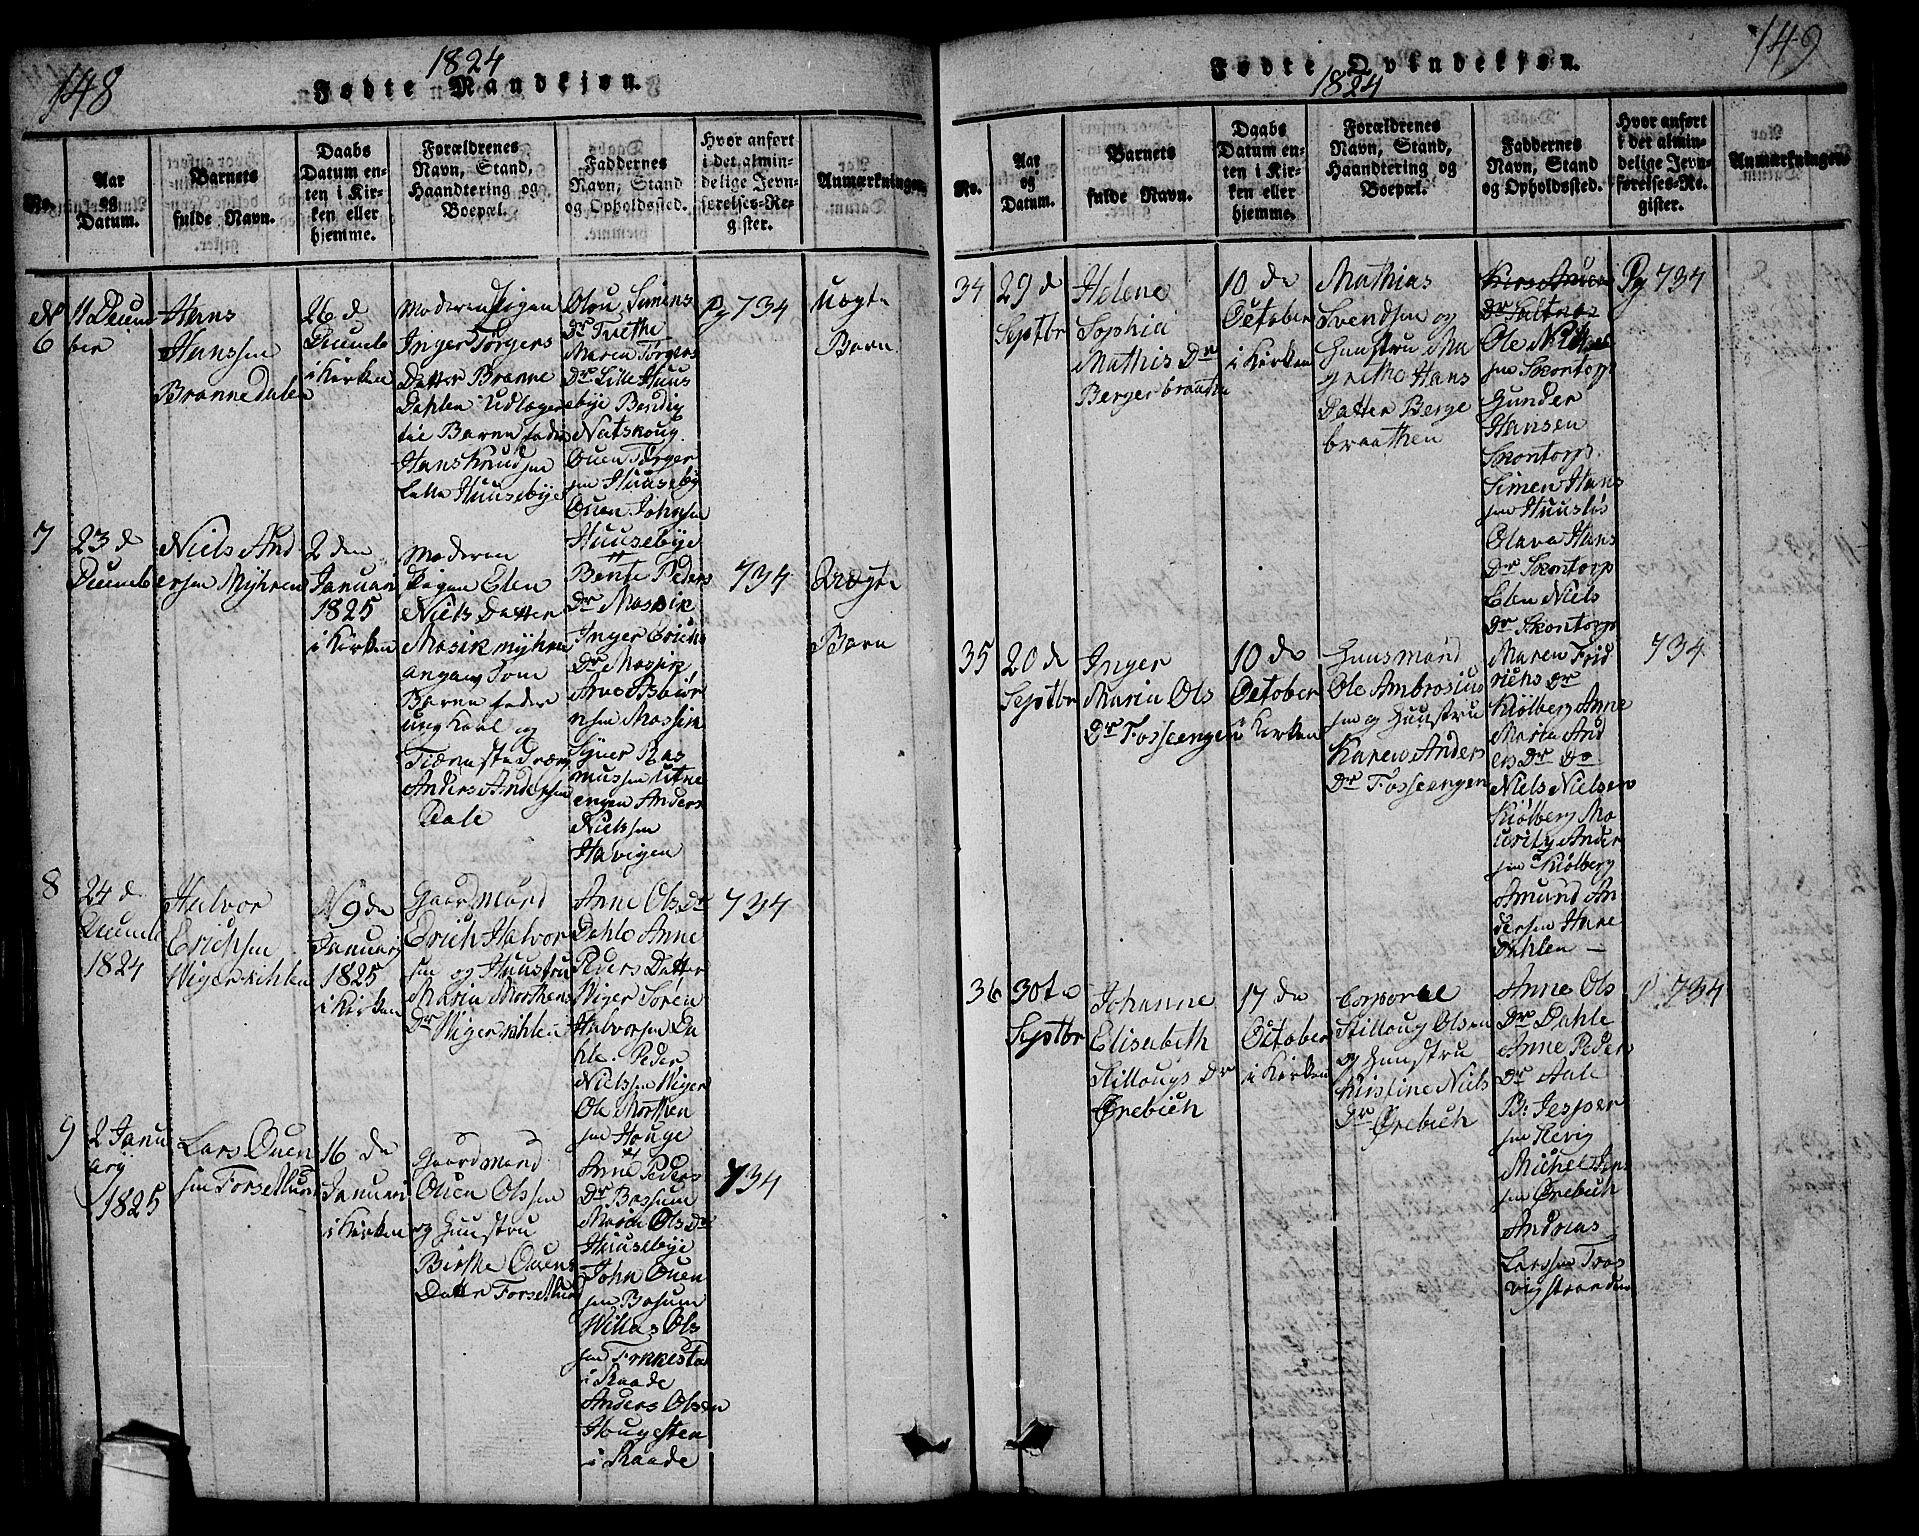 148
1824
Fødte Mandkjøn.
No.
Aar
og
Datum.
Barnets
fulde Navn.
Daabs
Datum en-
ten i Kir-
ken eller
hjemme.
Forældrenes
Navn, Stand,
Haandtering og
Boepæl.
Faddernes
Navn, Stand
og Opholdssted.
Hvor anført
i det almin-
delige Jevn-
førelses-Re-
gister.
Anmærkninger.
N
6
11 Decem
ber
Hans
Hanssen
Brannedalen
26 d
Decemb
i Kirken
Moderen Pigen
Inger Törgers
Datter Branne
Dahlen Udlagte
til Barne fader
Hans Knudsen
Lille Huusebye
Olou Simens
Dr
Maren Törgers
Dr Lille Huus
ebye Bendig
Natskoug
Ouen Törger
sen Huuseby
Ouen Johnsen
Huusebye
Pg 734
Uægte
Barn
7
23 d
Decemb
Niels And
ersen Myhren
2 den
Januari
1825
i Kirken
Moderen
Pigen Elen
Niels Datter
Mosik myhren
angav som
Barne fader
ung Karl og
Tienestedræng
Anders Andersen
Dale
Bente Peders
Dr Mossik
Inger Erichs
Dr Mossik
Arve Asbiör
nsen Mossik
Syver Ras
mussen Utne
engen Anders
Nielssen
Havigen
734
Uægte
Barn
8
24 d
Decemb
1824
Halvor
Erichsen
N 9 da
Januarj
1825
i Kirken
Gaardmand
Erich Halvor
sen og Huustru
Maria Morthens
Dr
Anne Ols Dr
Dahle Anne
Peders Datter
Wiger Sören
Halvorsen Da
hle. Peder
Nielssen Wiger
Ole Morthen
sen Houge
734
9
2 Janu
arij
1825
Lars Ouen
sen Forsetlund
16 da
Januari
i Kirken
Gaardmand
Ouen Olssen
og Huustru
Birthe Ouens
Datter Forsetlund
Anne Peders
Dr Bossum
Maria Ols Dr
Huusebye
John Ouen
sen Bosum
Willas Ols
sen
i Raade
Anders Olsen
Hougesten
i Raade
734
149
Fødte Qvindekjøn.
1824
No.
Aar
og
Datum.
Barnets
fulde Navn.
Daabs
Datum en-
ten i Kir-
ken eller
hjemme.
Forældrenes
Navn, Stand,
Haandtering og
Boepæl.
Faddernes
Navn, Stand
og Opholdssted.
Hvor anført
i der almin-
delige Jevn-
førelses-Re-
gister.
Anmærkninger
34
29 d
Septbr
Helene
Sophia
Mathis Dr
Bergerbraathe
10 de
October
i Kirken
Mathias
Svendsen og
Huustru Ma
grethe Hans
Datter Berge
braathen
Ole Nielsen
sen Skontorp
Gunder
Hansen
Skontorp.
Simen Hans
sen Huuslös
Olava Hans
Dr Skontorp
Elen Niels
Dr Skontorp
Pg 734
35
20 de
Septbr
Inger
Maria Ols
Dr Fosseengen
10 de
October
i Kirken
Huusmand
Ole Ambrosius
sen og Huustru
Karen Anders
Dr Fosseengen
Maren Frid
richs Dr
Kiölberg Anne
Maria And
ers Dr Do
Niels Nielsen
Kiölberg Mo
uritz Ander
sen Kiölberg
Amund An
dersen Hare
Dahlen —
734
36
30te
Septbr
Johanne
Elisabeth
Stillougs Dr
Ørebich
17 da
October
i Kirken
Corporal
Stilloug Olsen
og Huustru
Kristine Niels
Dr
Ørebich
Anne Ols
Dr Dahle
Anne Peder
Dr Aale
Br Jesper
sen Kevig
Michel Jens
sen Ørebich
Andreas
Larssen Tros
vigstranden
P. 734